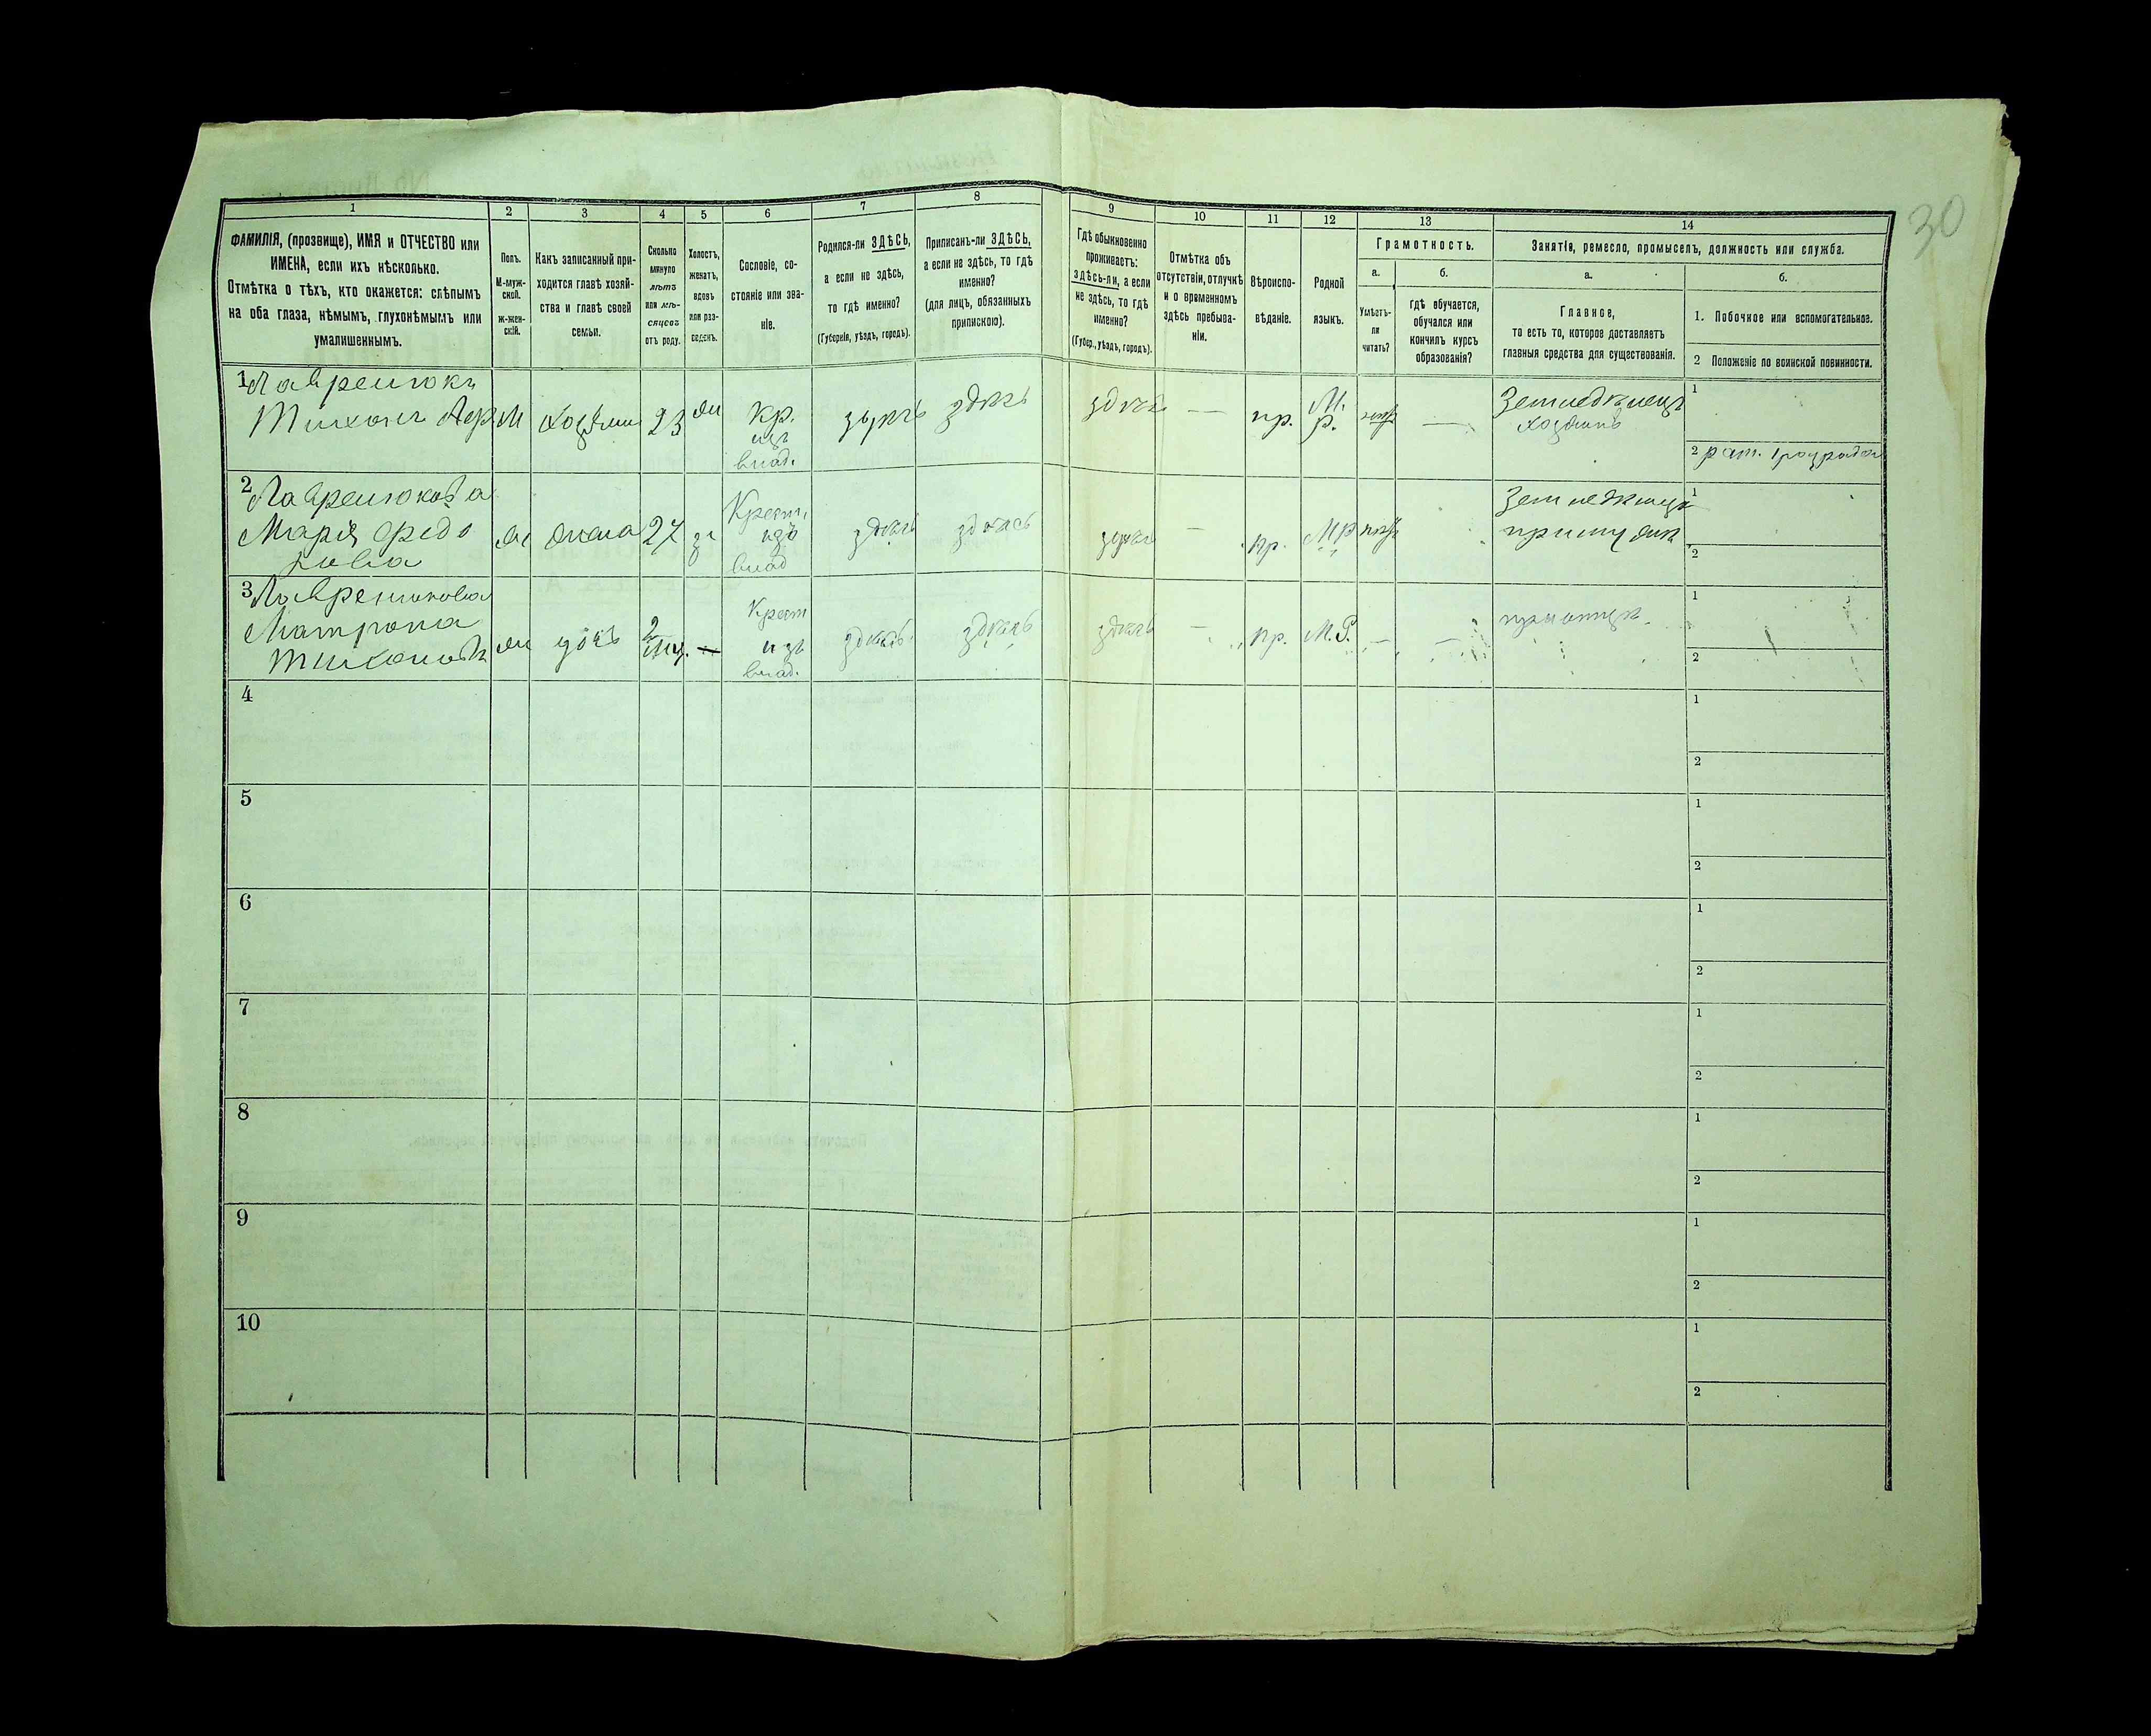 30
1 2 3 4 5 6 7 8 9 10 11 12 13 14
ФАМИЛІЯ, (прозвище), ИМЯ и ОТЧЕСТВО или
ИМЕНА, если ихъ нѣсколько.
Отмѣтка о тѣхъ, кто окажется: слѣпымъ
на оба глаза, нѣмымъ, глухонѣмымъ или
умалишеннымъ.
Полъ.
М-муж-
ской.
ж-жен-
скій.
Какъ записанный при-
ходится главѣ хозяй-
ства и главѣ своей
семьи.
Сколько
минуло
лѣтъ
или мѣ-
сяцевъ
отъ роду.
Холостъ,
женатъ,
вдовъ
или раз-
веденъ.
Сословіе, со-
стояніе или зва-
ніе.
Родился-ли ЗДѢСЬ,
а если не здѣсь,
то гдѣ именно?
(Губернія, уѣздъ, городъ).
Приписанъ-ли ЗДѢСЬ,
а если не здѣсь, то гдѣ
именно?
(для лицъ, обязанныхъ
припискою).
Гдѣ обыкновенно
проживаетъ:
здѣсь-ли, а если
не здѣсь, то гдѣ
именно?
(Губер., уѣздъ, городъ).
Отмѣтка объ
отсутствіи, отлучкѣ
и о временномъ
здѣсь пребыва-
ніи.
Вѣроиспо-
вѣданіе.
Родной
языкъ.
Грамотность.
а.
Умѣетъ-
ли
читать?
б.
гдѣ обучается,
обучался или
кончилъ курсъ
образованія?
Занятіе, ремесло, промыселъ, должность или служба.
а.
Главное,
то есть то, которое доставляетъ
главныя средства для существованія.
б.
1. Побочное или вспомогательное.
2 Положеніе по воинской повинности.
1 Лавренюкъ
Тихонъ М хозяинъ 23 жн кр. здѣсь здѣсь здѣсь — пр. М. — Земледѣлецъ 1
изъ р. хозяинъ
влад.
2 рат. 1 разряда
2 Лавренюкова
Марія Ѳедо ж жена 27 за Крест. здѣсь здѣсь здѣсь — пр. МР Земледѣлец 1
изъ
влад 2
3 Лавренюкова
Матрона ж дочь 2 — Крест здѣсь здѣсь здѣсь — пр. М.Р. — — 1
изъ
влад. 2
4 1
2
5 1
2
6 1
2
7 1
2
8 1
2
9 1
2
10 1
2